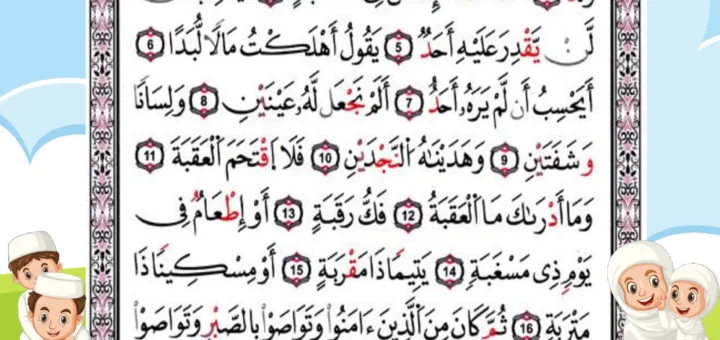 لَّن يَّقْدِرَ عَلَيْهِ أَحَدٌ ٥ يَقُولُ أَهْلَكْتُ مَالًا لُّبَدًا ٦
أَيَحْسَبُ أَن لَّمْ يَرَهُۥٓ أَحَدٌ ٧ أَلَمْ نَجْعَل لَّهُۥ عَيْنَيْنِ ٨ وَلِسَانًا
وَشَفَتَيْنِ ٩ وَهَدَيْنَٰهُ ٱلنَّجْدَيْنِ ١٠ فَلَا ٱقْتَحَمَ ٱلْعَقَبَةَ ١١
وَمَآ أَدْرَىٰكَ مَا ٱلْعَقَبَةُ ١٢ فَكُّ رَقَبَةٍ ١٣ أَوْ إِطْعَٰمٌ فِى
يَوْمٍ ذِى مَسْغَبَةٍ ١٤ يَتِيمًا ذَا مَقْرَبَةٍ ١٥ أَوْ مِسْكِينًا ذَا
مَتْرَبَةٍ ١٦ ثُمَّ كَانَ مِنَ ٱلَّذِينَ ءَامَنُوا۟ وَتَوَاصَوْا۟ بِٱلصَّبْرِ وَتَوَاصَوْا۟